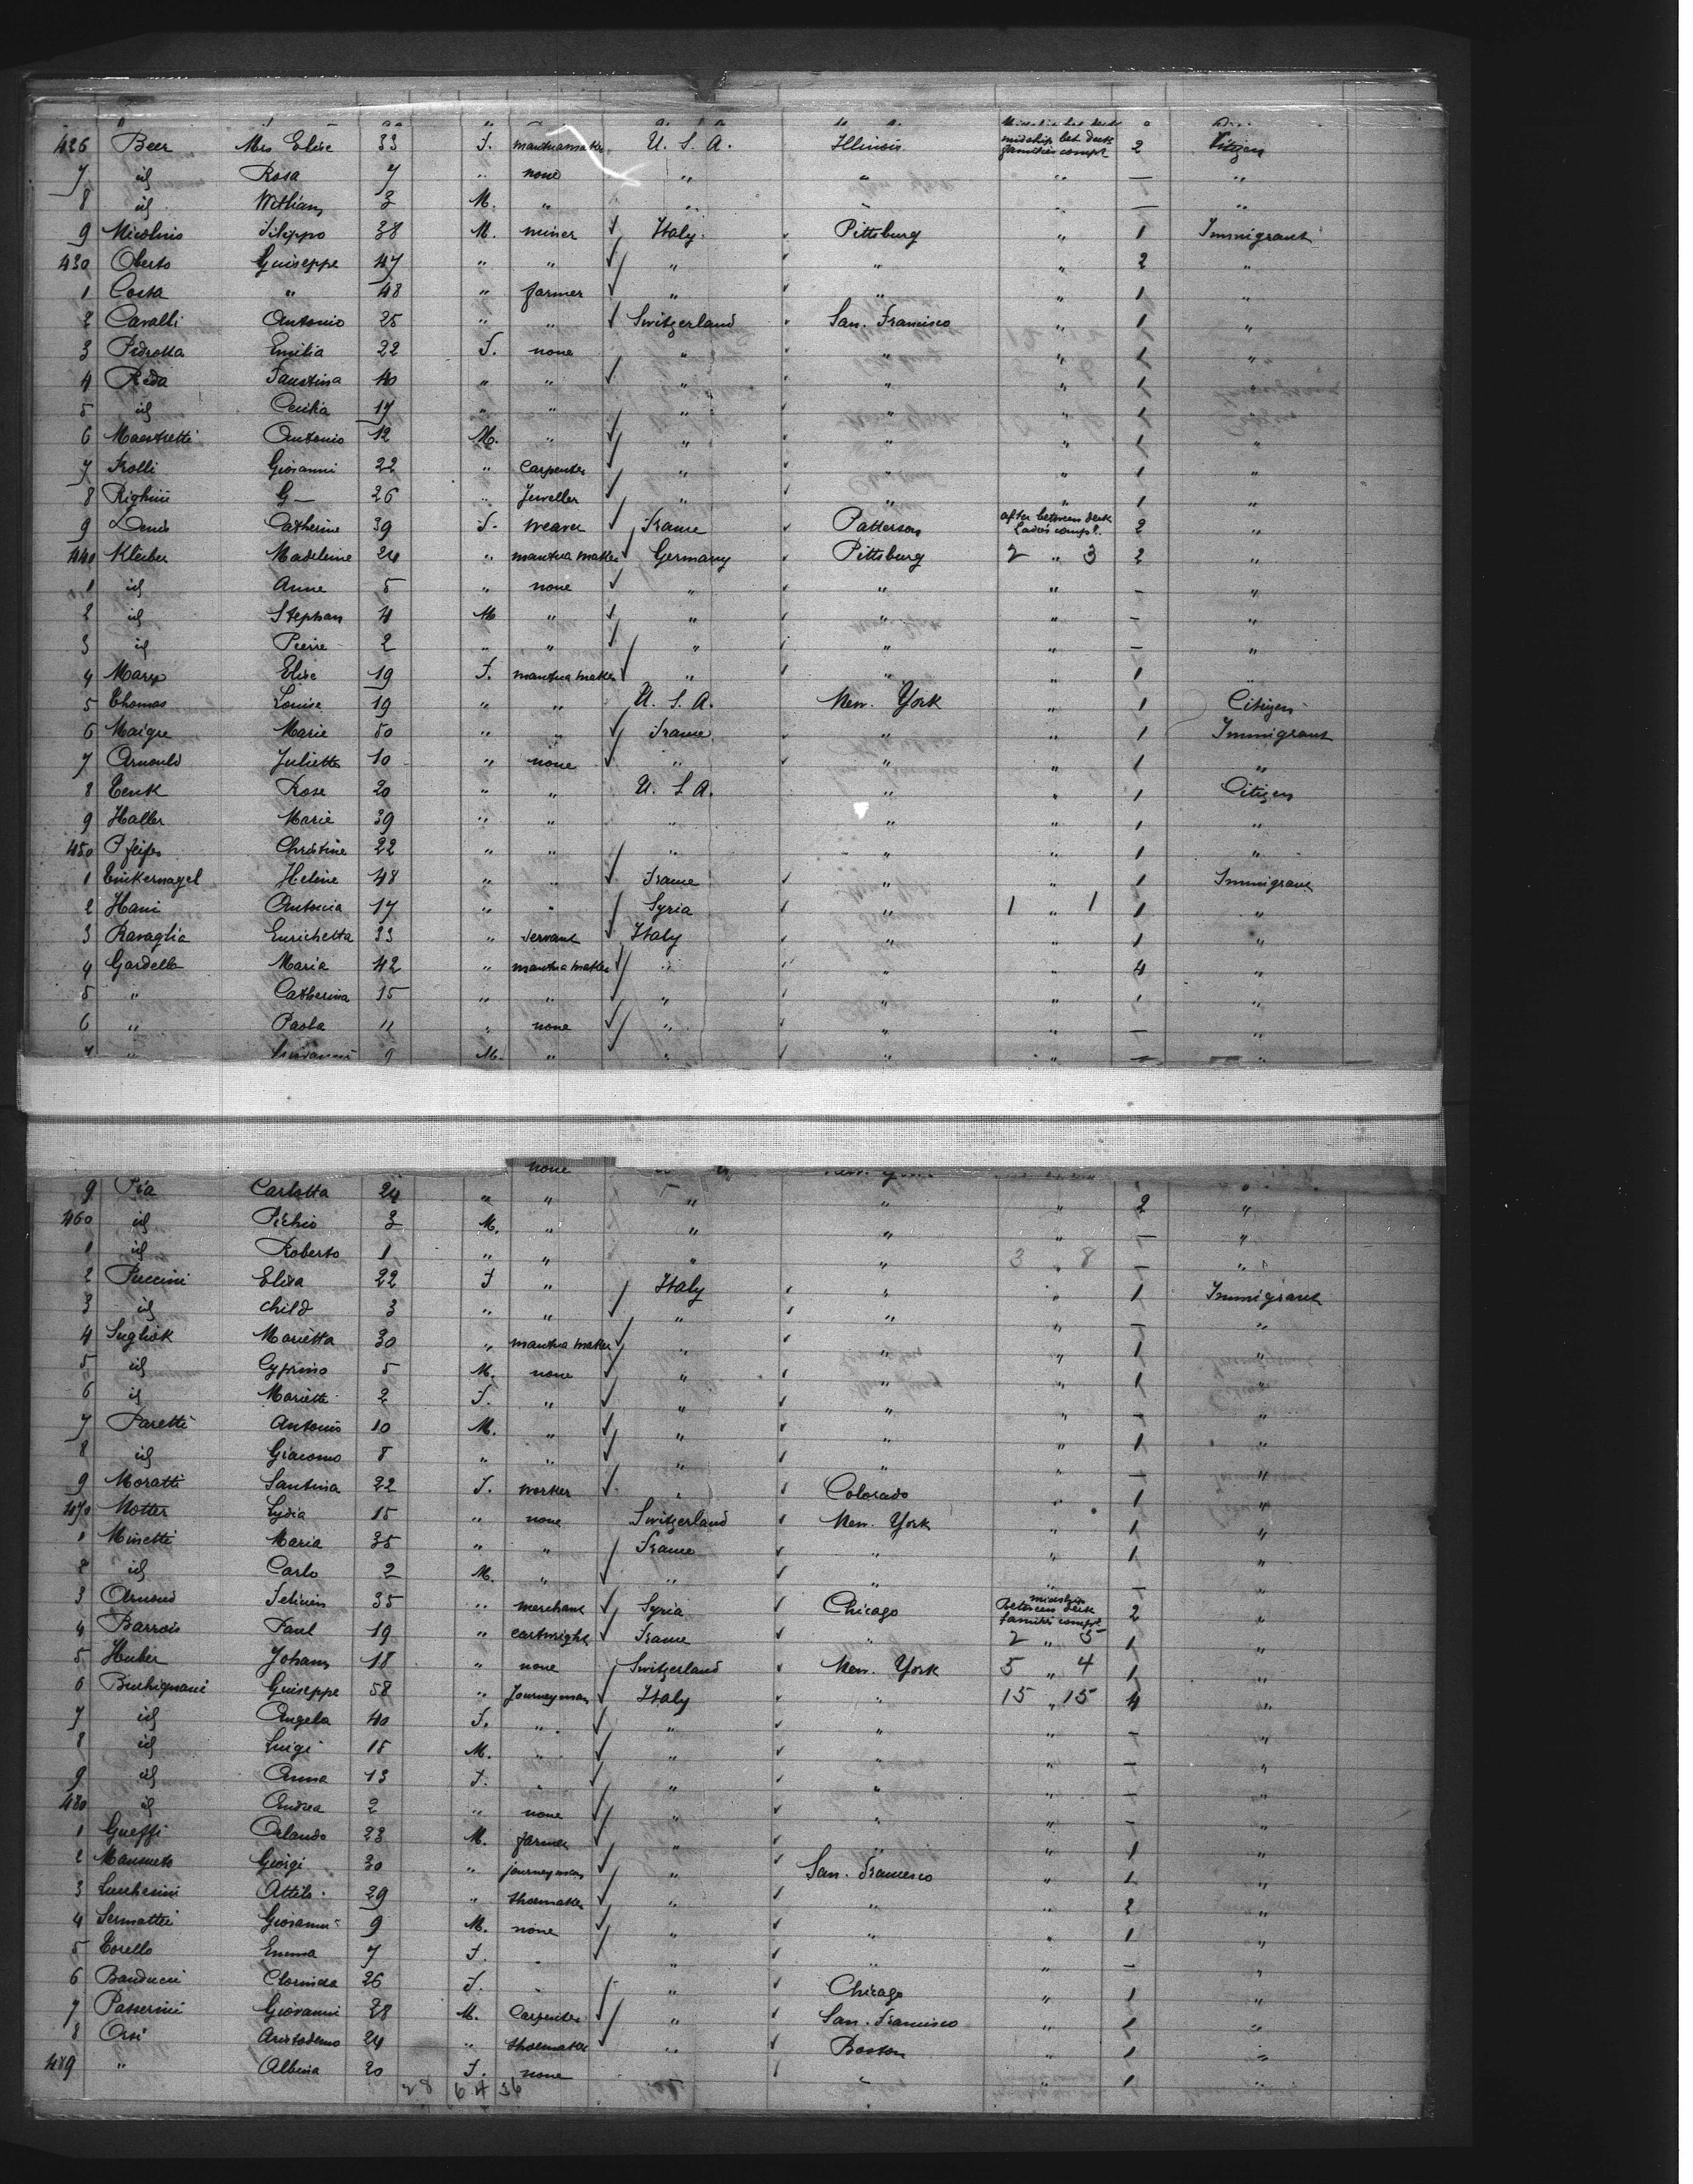 426 Beer Mrs Elise 33 F. mantuamaker U. S. A. Illinois midship bet. deck families compt 2 Citizen
7 id Rosa 7 " none " " " — "
8 id William 3 M. " " " " — "
9 Nicolinio Filippo 38 M. miner Italy. Pittsburg " 1 Immigrant
430 Oberto Guiseppe 47 " " " " " 2 "
1 Costa " 48 " farmer " " " 1 "
2 Cavalli Antonio 25 " " Switzerland San. Francisco " 1 "
3 Pedrotta Emilia 22 F. none " " " 1 "
4 Reda Faustina 40 " " " " " 1 "
5 id Cecilia 17 " " " " " 1 "
6 Maestretti Antonio 12 M. " " " " 1 "
7 Frolli Giovanni 22 " Carpenter " " " 1 "
8 Righini G — 26 " Jeweller " " " 1 "
9 Denis Catherine 39 F. weaver France Patterson after between deck Ladies compt. 2 "
440 Kleiber Madeleine 24 " mantua maker Germany Pittsburg 2 " 3 2 "
1 id Anne 5 " none " " " - "
2 id Stephan 4 M " " " " - "
3 id Pierre 2 " " " " " - "
4 Marx Elise 19 F. mantua maker " " " 1 "
5 Thomas Louise 19 " " U. S. A. New. York " 1 Citizen
6 Maigre Marie 50 " " France " " 1 Immigrant
7 Arnould Juliette 10 " none " " " 1 "
8 Tenk Rose 20 " " U. S. A. " " 1 Citizen
9 Haller Marie 39 " " " " " 1 "
450 Pfeifer Christine 22 " " " " " 1 "
1 Tinkernagel Helene 48 " " France " " 1 Immigrant
2 Hani Antonia 17 " " Syria " 1 " 1 1 "
3 Ravaglia Enrichetta 33 " servant Italy " " 1 "
4 Gardella Maria 42 " mantua maker " " " 4 "
5 " Catherina 15 " " " " " ' "
6 " Paola 11 " none " " " — "
7 " Giovanni 9 M. " " " " — "
none
9 Pia Carlotta 24 " " " " " 2 "
460 id Pichio 3 M. " " " " — "
1 id Roberto 1 " " " " 3 " 8 — "
2 Puccini Elisa 22 F " Italy " " 1 Immigrant
3 id child 3 " " " " " — "
4 Sugliok Marietta 30 " mantua maker " " " 1 "
5 id Cyprino 5 M. none " " " 1 "
6 id Marietti 2 F. " " " " - "
7 Paretti Antonio 10 M. " " " " 1 "
8 id Giacomo 8 " " " " " — "
9 Moratti Santina 22 F. worker " Colorado " 1 "
470 Notter Lydia 15 " none Switzerland New. York " 1 "
1 Minetti Maria 35 " " France " " 1 "
2 id Carlo 2 M. " " " " — "
3 Arnoud Felicien 35 " merchant Syria Chicago midship Between deck families compt. 2 "
4 Barrois Paul 19 " cartwright France " 2 " 5 1 "
5 Huber Johann 18 " none Switzerland New. York 5 " 4 1 "
6 Buchignani Guiseppe 58 " Journeyman Italy " 15 " 15 4 "
7 id Angela 40 F. " " " " - "
8 id Luigi 15 M. " " " " — "
9 id Anna 13 F. " " " " — "
480 id Andrea 2 " none " " " - "
1 Gueffi Orlando 23 M. farmer " " " 1 "
2 Mansueto Giorgi 30 " journeyman " San. Francisco " 1 "
3 Lucchesini Attilo 29 " shoemaker " " " 2 "
4 Sermattei Giovanni 9 M. none " " " 1 "
5 Torello Emma 7 F. " " " " — "
6 Banducci Clorinda 26 F. " " Chicago " 1 "
7 Passerini Giovanni 28 M. Carpenter " San. Francisco " 1 "
8 Orsi Aristodemo 24 " shoemaker " Boston " 1 "
489 " Albina 20 F. none " " 1 "
28 64 36